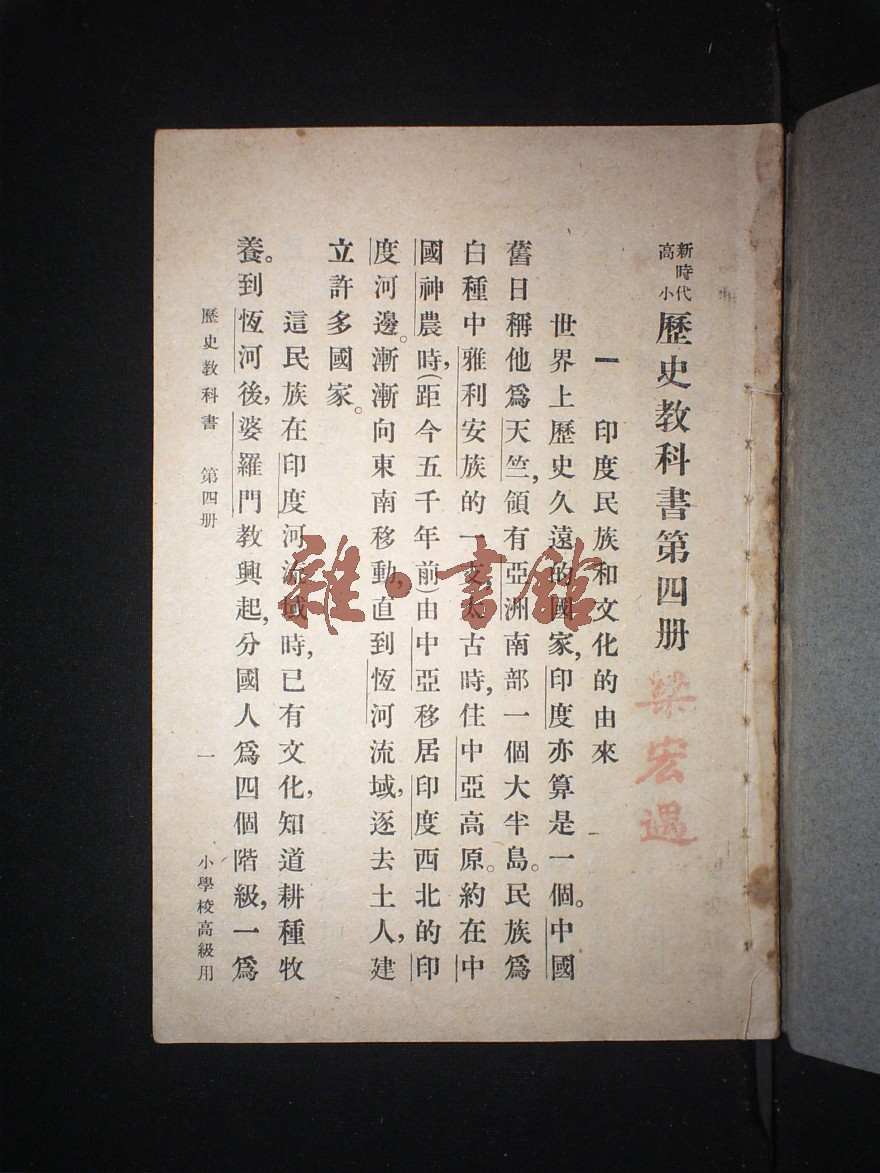 新時代
高小
歷史教科書第四册
梁宏遇
一　印度民族和文化的由來
世界上歷史久遠的國家,印度亦算是一個。中國
舊日稱他爲天竺,領有亞洲南部一個大半島。民族爲
白種中雅利安族的一支,太古時,住中亞高原。約在中
國神農時,(距今五千年前)由中亞移居印度西北的印
度河邊。漸漸向東南移動,直到恆河流域,逐去土人,建
立許多國家。
這民族在印度河流域時,已有文化,知道耕種牧
養。到恆河後,婆羅門教興起,分國人爲四個階級,一爲
歷史教科書　第四册　一　小學校高級用
雜·書館